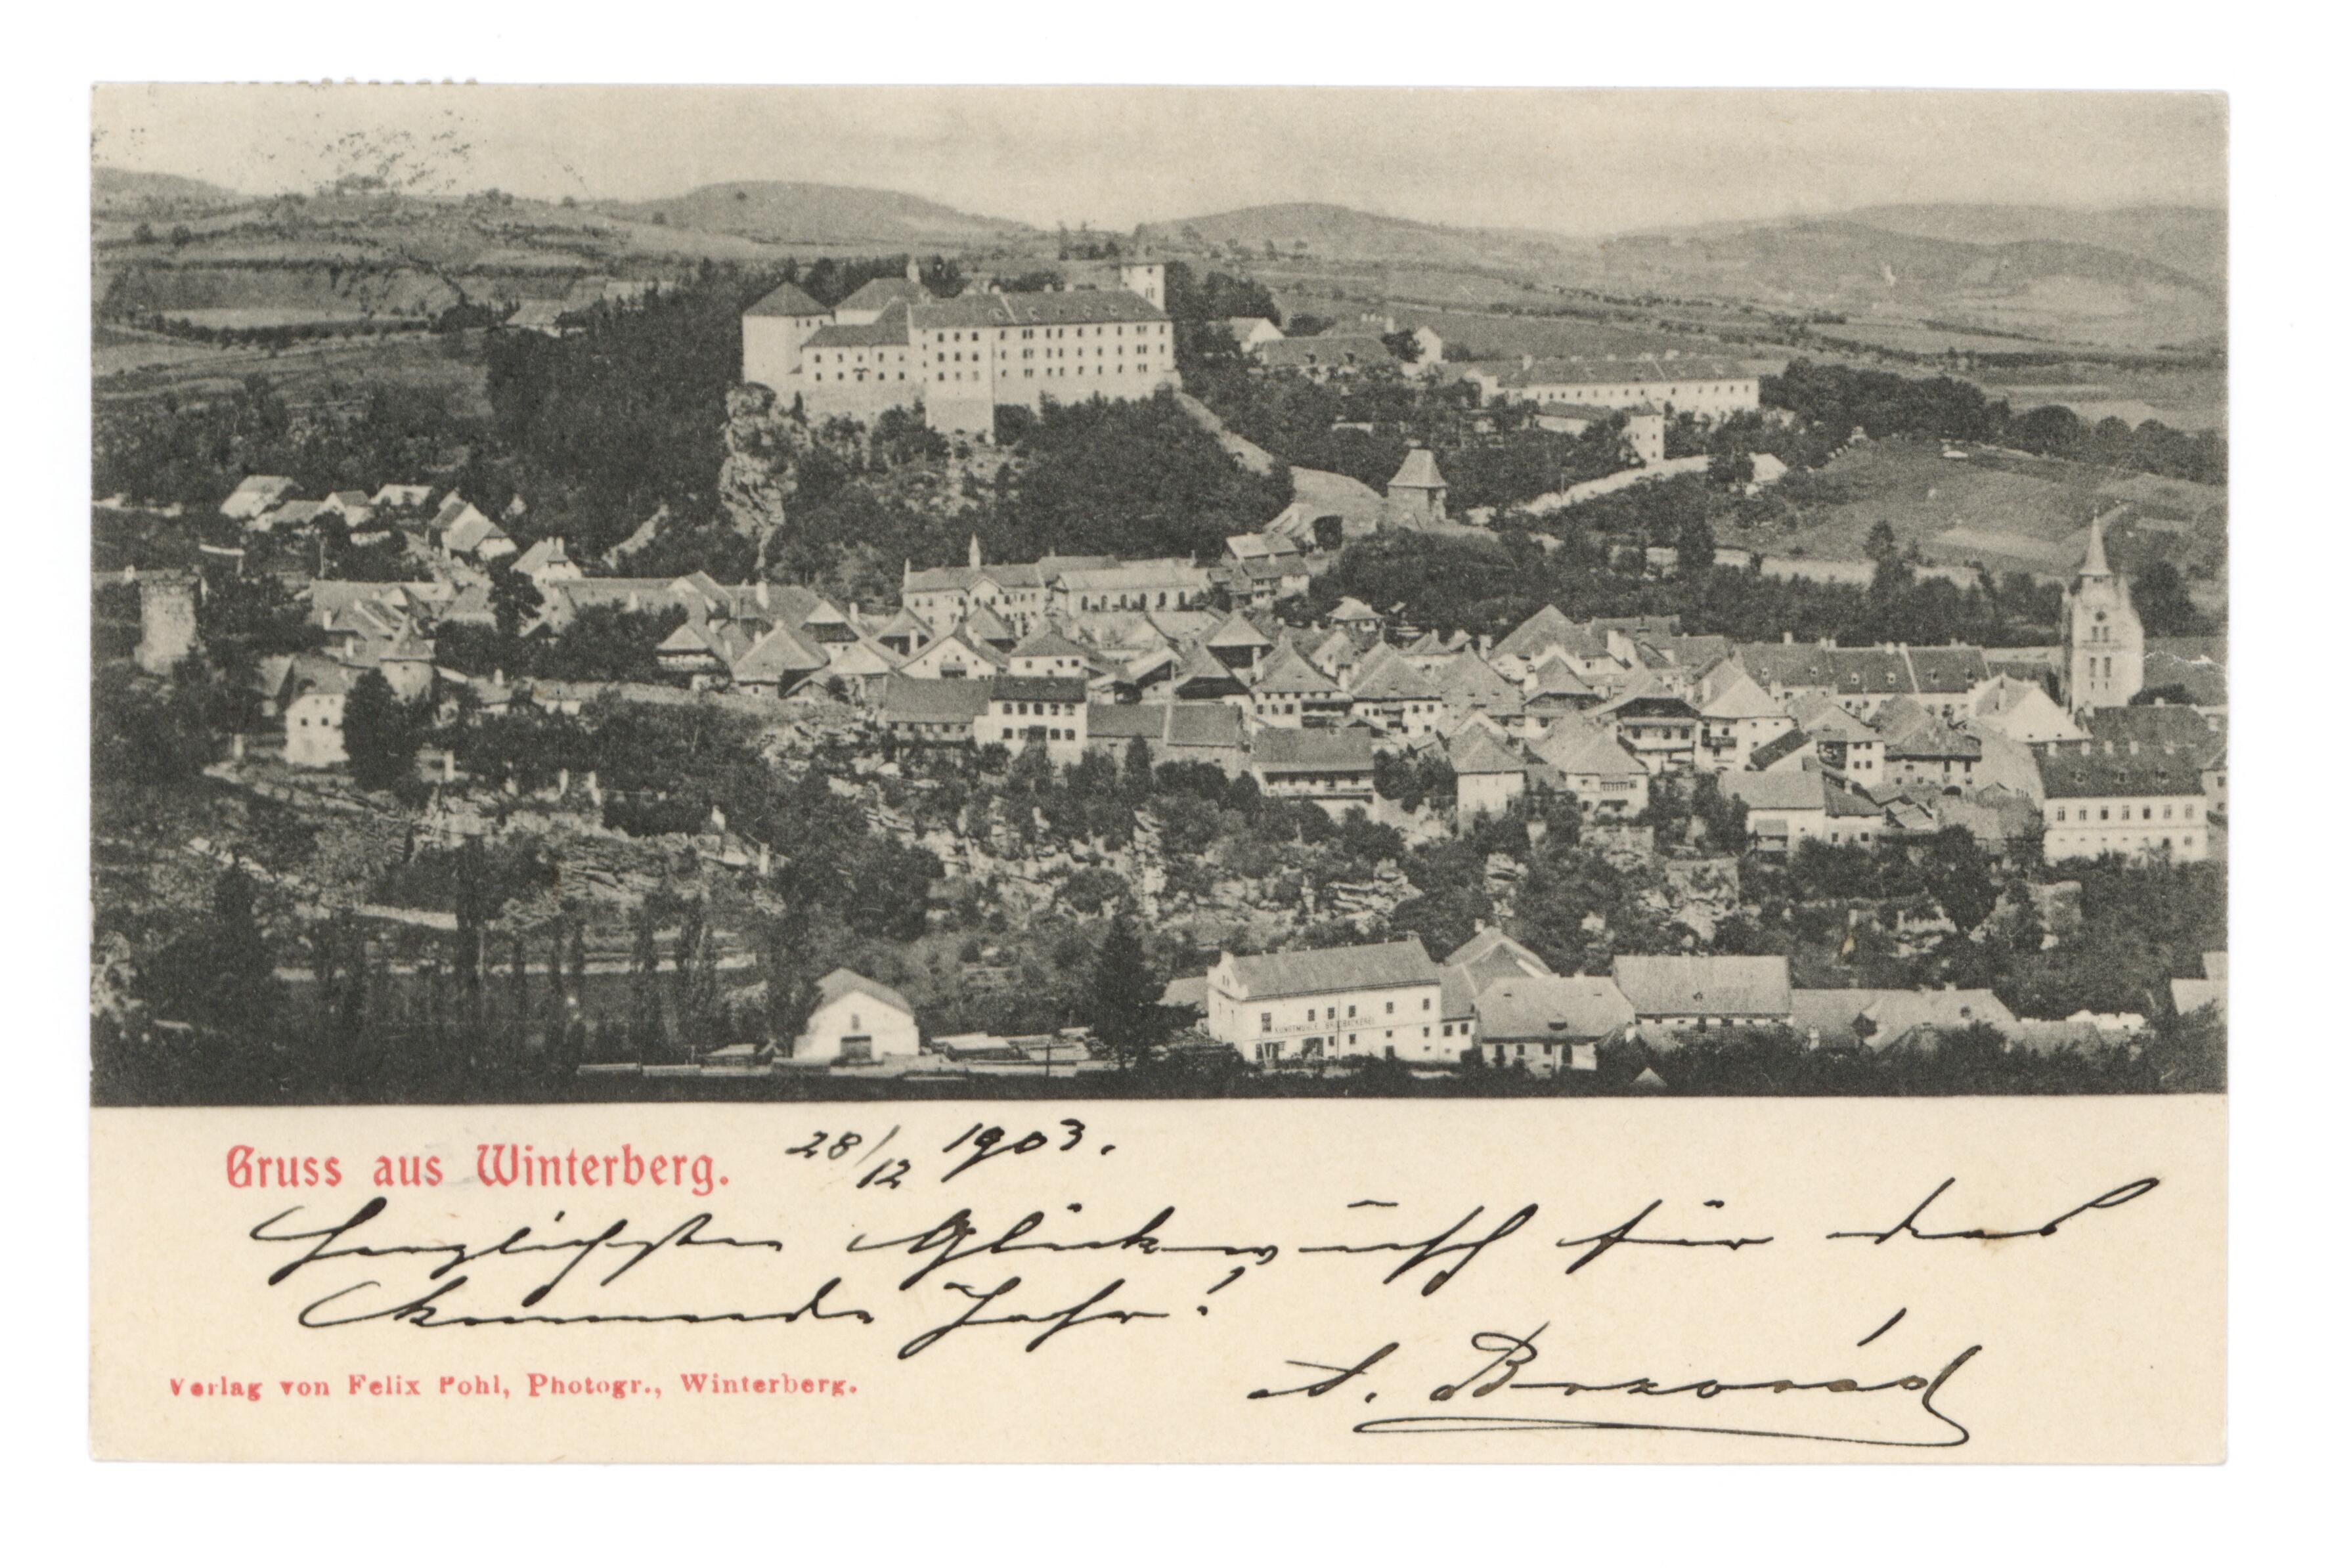 KUNSTMÜHLE
Gruss aus Winterberg. 28/12 1903.
Herzlichsten Glückwunsch für das
kommende Jahr!
Verlag von Felix Pohl, Photogr., Winterberg.
A.